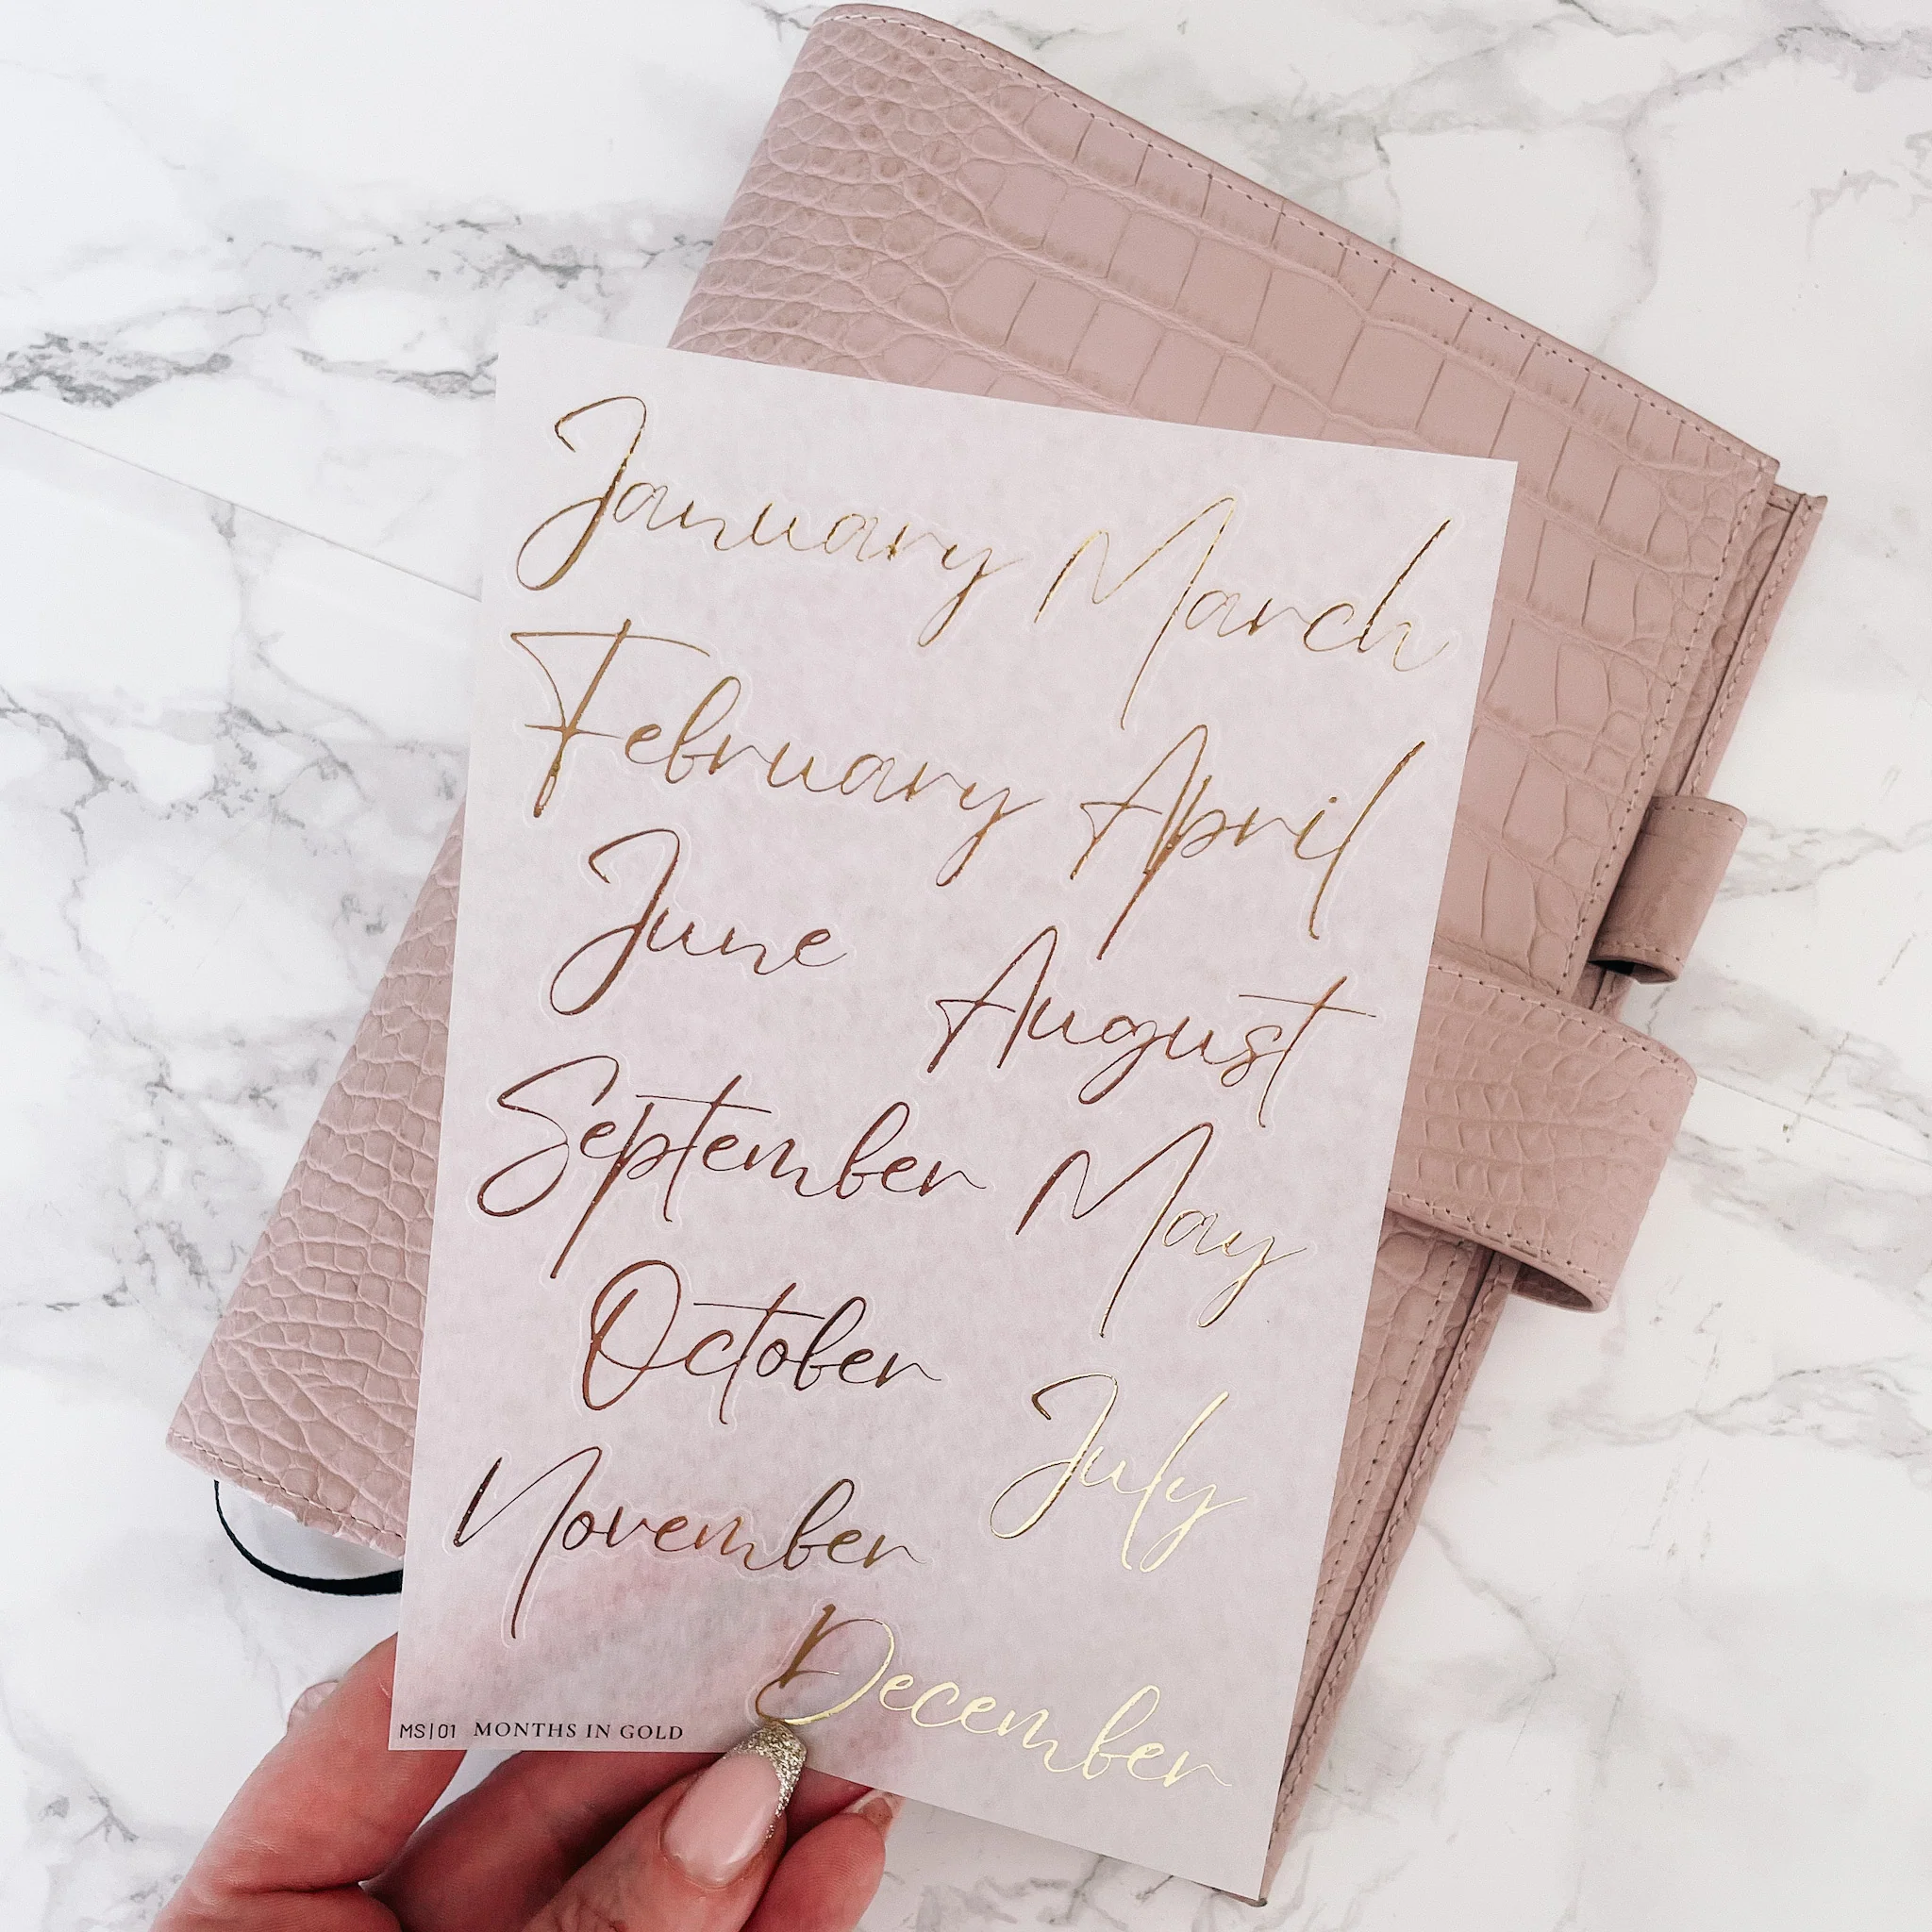 January March
February April
June August
September May
October July
November
December
MS|01 MONTHS IN GOLD